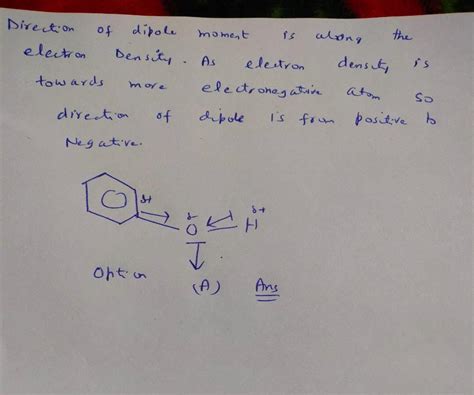 Direction of dipole moment is along the
electron Density. As electron density is
towards more electronegative atom so
direction of dipole is from positive to
Negative.
δ+ δ- δ+
O H
Option (A) Ans